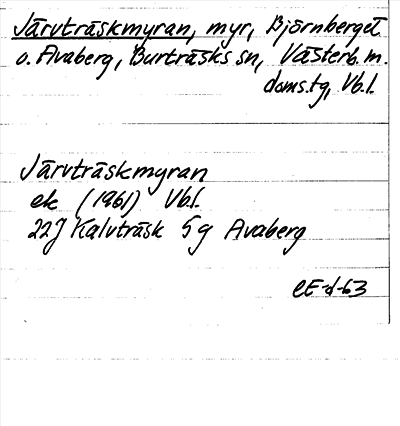 Järvträskmyran, myr, Björnberget
o. Avaberg, Burträsks sn, Västerb. m.
doms.tg, Vb.l.
Järvträskmyran
ek (1961) Vb.l.
22J Kalvträsk 5g Avaberg